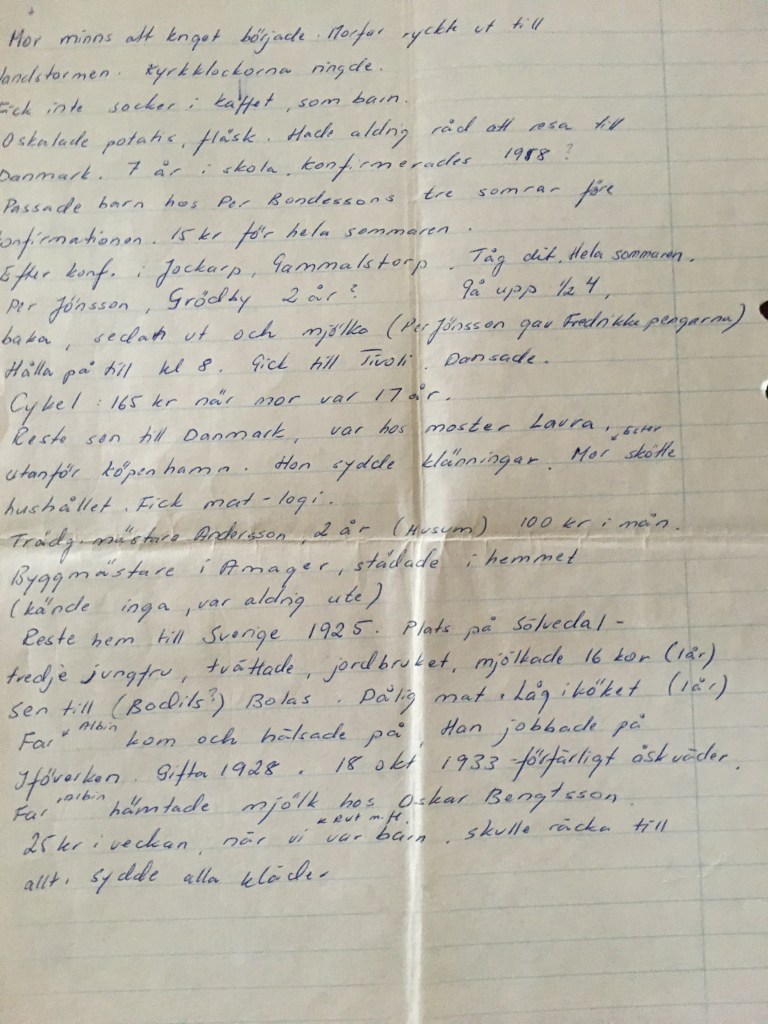 Mor minns att kriget började. Morfar ryckte ut till
landstormen. Kyrkklockorna ringde.
Fick inte socker i kaffet, som barn.
Oskalade potatis, fläsk. Hade aldrig råd att resa till
Danmark. 7 år i skola. Konfirmerades 1918?
Passade barn hos Per Bondessons tre somrar före
konfirmationen. 15 kr för hela sommaren.
Efter konf. i Jockarp, Gammalstorp. Tåg dit. Hela sommaren.
Per Jönsson, Grödby 2 år? Gå upp 1/2 4,
baka, sedan ut och mjölka (Per Jönsson gav Fredrikke pengarna)
Hålla på till kl 8. Gick till Tivoli. Dansade.
Cykel: 165 kr när mor var 17 år.
Reste sen till Danmark, var hos moster Laura,
utanför Köpenhamn. Hon sydde klänningar. Mor Ester skötte
hushållet. Fick mat-logi.
Trädg.mästare Andersson, 2 år (Husum) 100 kr i mån.
Byggmästare i Amager, städade i hemmet
(kände inga, var aldrig ute)
Reste hem till Sverige 1925. Plats på Sölvedal -
tredje jungfru, tvättade, jordbruket, mjölkade 16 kor (1år)
Sen till (Bodils?) Bolas. Dålig mat. Låg i köket (1år)
Far Albin kom och hälsade på. Han jobbade på
Iföverken. Gifta 1928. 18 okt 1933 - förfärligt åskväder.
Far Albin hämtade mjölk hos Oskar Bengtsson.
25 kr i veckan, när vi Rut m.fl. var barn. skulle räcka till
allt. Sydde alla kläder